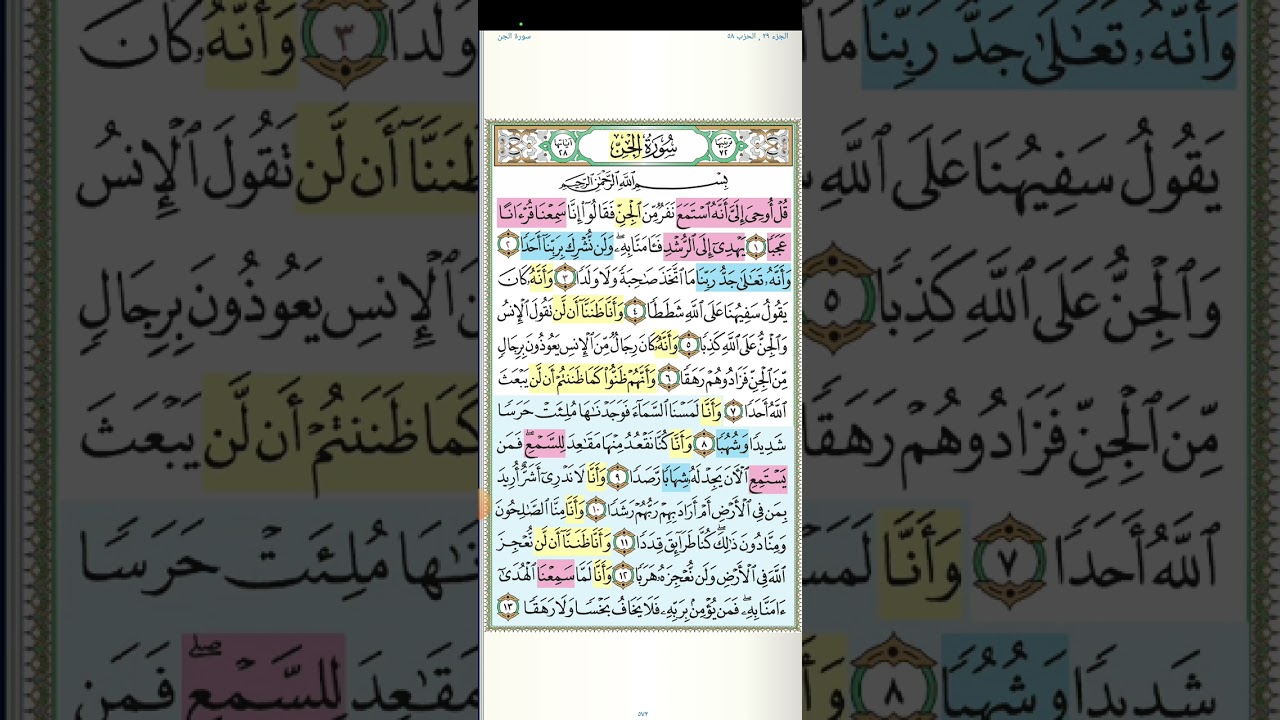 سورة الجن
الجزء ٢٩ , الحزب ٥٨
ترتيبها ٧٢ سُورَةُ الْجِنِّ آياتها ٢٨
بِسْمِ ٱللَّهِ ٱلرَّحْمَٰنِ ٱلرَّحِيمِ
قُلْ أُوحِىَ إِلَىَّ أَنَّهُ ٱسْتَمَعَ نَفَرٌ مِّنَ ٱلْجِنِّ فَقَالُوٓا۟ إِنَّا سَمِعْنَا قُرْءَانًا
عَجَبًا ١ يَهْدِىٓ إِلَى ٱلرُّشْدِ فَـَٔامَنَّا بِهِۦ ۖ وَلَن نُّشْرِكَ بِرَبِّنَآ أَحَدًا ٢
وَأَنَّهُۥ تَعَٰلَىٰ جَدُّ رَبِّنَا مَا ٱتَّخَذَ صَٰحِبَةً وَلَا وَلَدًا ٣ وَأَنَّهُۥ كَانَ
يَقُولُ سَفِيهُنَا عَلَى ٱللَّهِ شَطَطًا ٤ وَأَنَّا ظَنَنَّآ أَن لَّن تَقُولَ ٱلْإِنسُ
وَٱلْجِنُّ عَلَى ٱللَّهِ كَذِبًا ٥ وَأَنَّهُۥ كَانَ رِجَالٌ مِّنَ ٱلْإِنسِ يَعُوذُونَ بِرِجَالٍ
مِّنَ ٱلْجِنِّ فَزَادُوهُمْ رَهَقًا ٦ وَأَنَّهُمْ ظَنُّوا۟ كَمَا ظَنَنتُمْ أَن لَّن يَبْعَثَ
ٱللَّهُ أَحَدًا ٧ وَأَنَّا لَمَسْنَا ٱلسَّمَآءَ فَوَجَدْنَٰهَا مُلِئَتْ حَرَسًا
شَدِيدًا وَشُهُبًا ٨ وَأَنَّا كُنَّا نَقْعُدُ مِنْهَا مَقَٰعِدَ لِلسَّمْعِ ۖ فَمَن
يَسْتَمِعِ ٱلْـَٔانَ يَجِدْ لَهُۥ شِهَابًا رَّصَدًا ٩ وَأَنَّا لَا نَدْرِىٓ أَشَرٌّ أُرِيدَ
بِمَن فِى ٱلْأَرْضِ أَمْ أَرَادَ بِهِمْ رَبُّهُمْ رَشَدًا ١٠ وَأَنَّا مِنَّا ٱلصَّٰلِحُونَ
وَمِنَّا دُونَ ذَٰلِكَ ۖ كُنَّا طَرَآئِقَ قِدَدًا ١١ وَأَنَّا ظَنَنَّآ أَن لَّن نُّعْجِزَ
ٱللَّهَ فِى ٱلْأَرْضِ وَلَن نُّعْجِزَهُۥ هَرَبًا ١٢ وَأَنَّا لَمَّا سَمِعْنَا ٱلْهُدَىٰٓ
ءَامَنَّا بِهِۦ ۖ فَمَن يُؤْمِنۢ بِرَبِّهِۦ فَلَا يَخَافُ بَخْسًا وَلَا رَهَقًا ١٣
٥٧٢